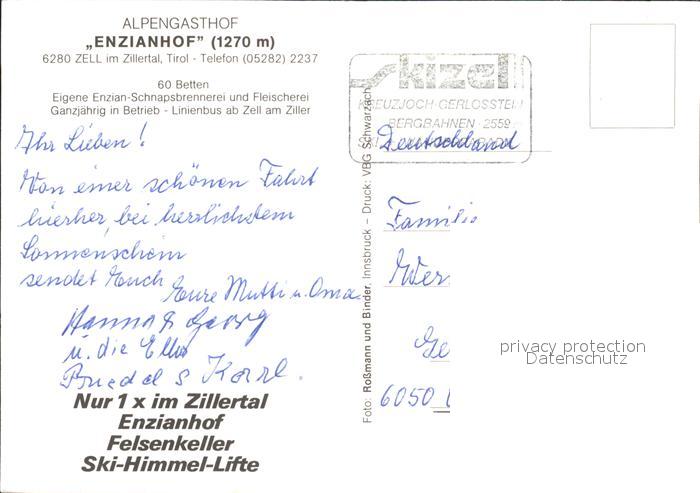 ALPENGASTHOF
„ENZIANHOF” (1270 m)
6280 ZELL im Zillertal, Tirol - Telefon (05282) 2237
60 Betten
Eigene Enzian-Schnapsbrennerei und Fleischerei
Ganzjährig in Betrieb - Linienbus ab Zell am Ziller
Ihr Lieben!
Von einer schönen Fahrt
hierher, bei herrlichstem
Sonnenschein
sendet Euch
Eure Mutti u. Oma
Hanna & Georg
u. die
Karl.
Nur 1 x im Zillertal
Enzianhof
Felsenkeller
Ski-Himmel-Lifte
Foto: Roßmann und Binder, Innsbruck – Druck: VBG Schwarzach
skizell
KREUZJOCH·GERLOSSTEIN
BERGBAHNEN·2559
Deutschland
Familie
Wer
Ge
6050
privacy protection
Datenschutz